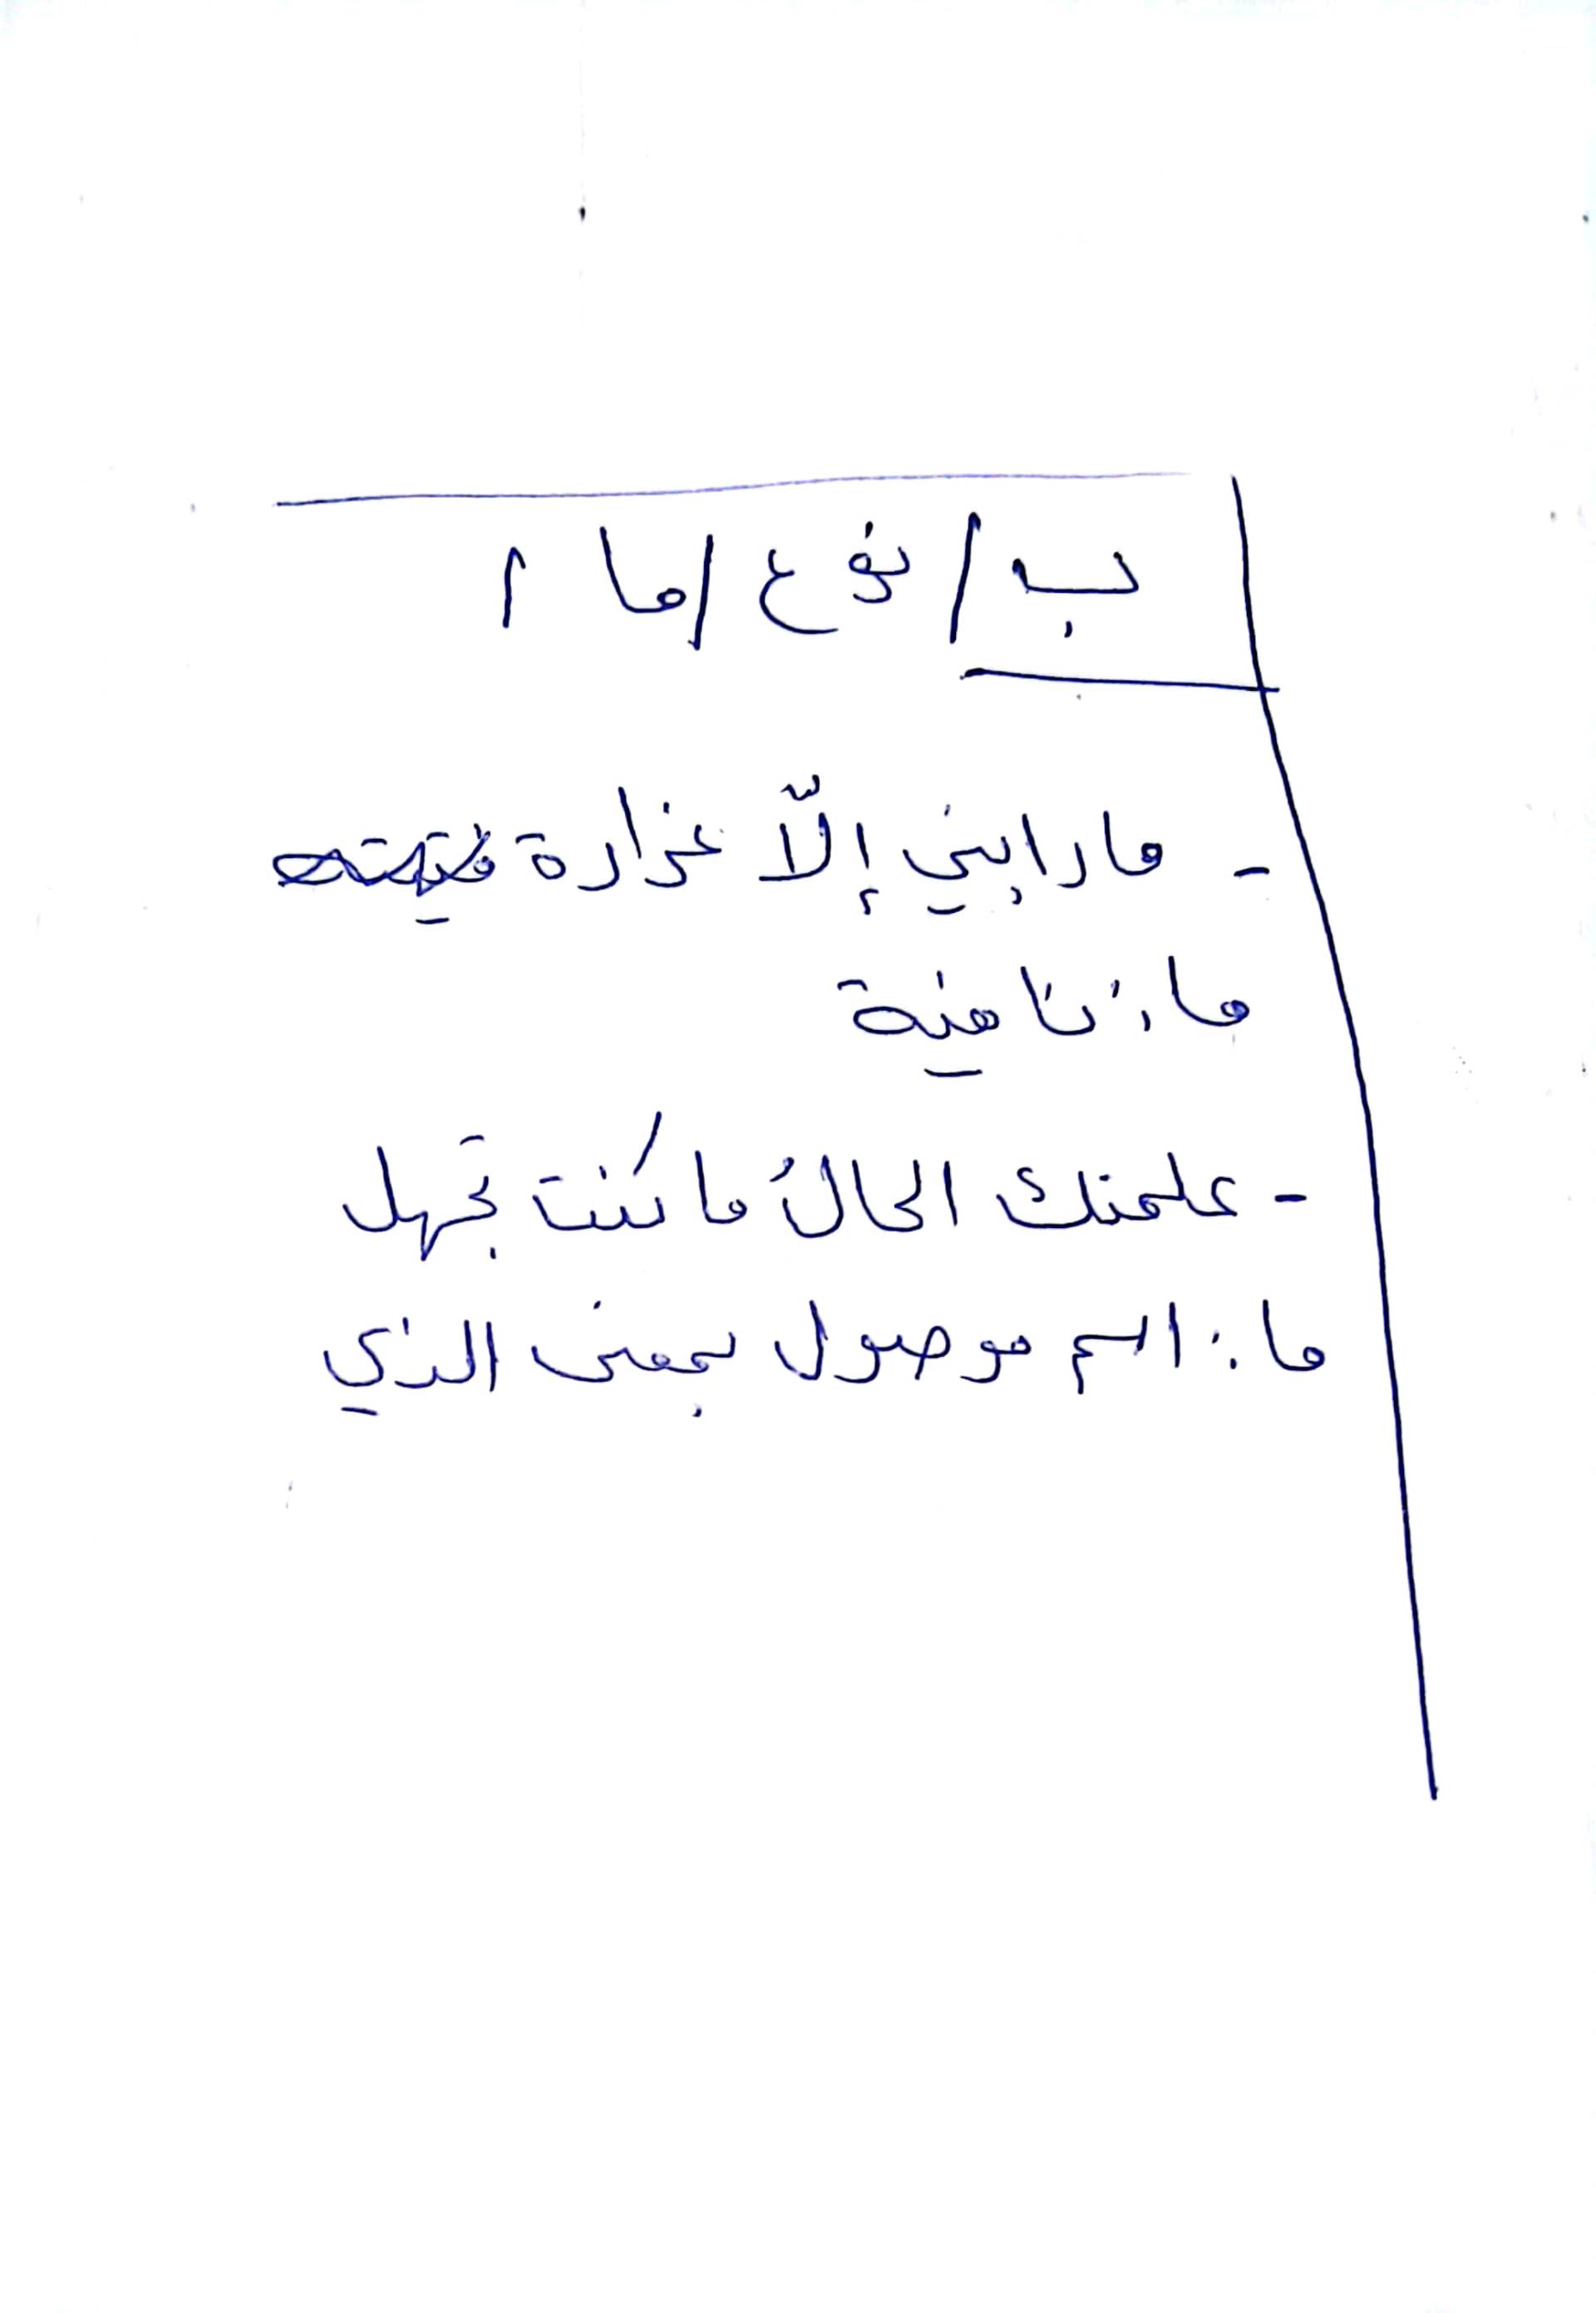 ب / نوع / ما /
- ما رابني إلّا غزارة
ما: نا هية
- علمتك الحالُ ما كنت تجهل
ما: اسم موصول بمعنى الذي